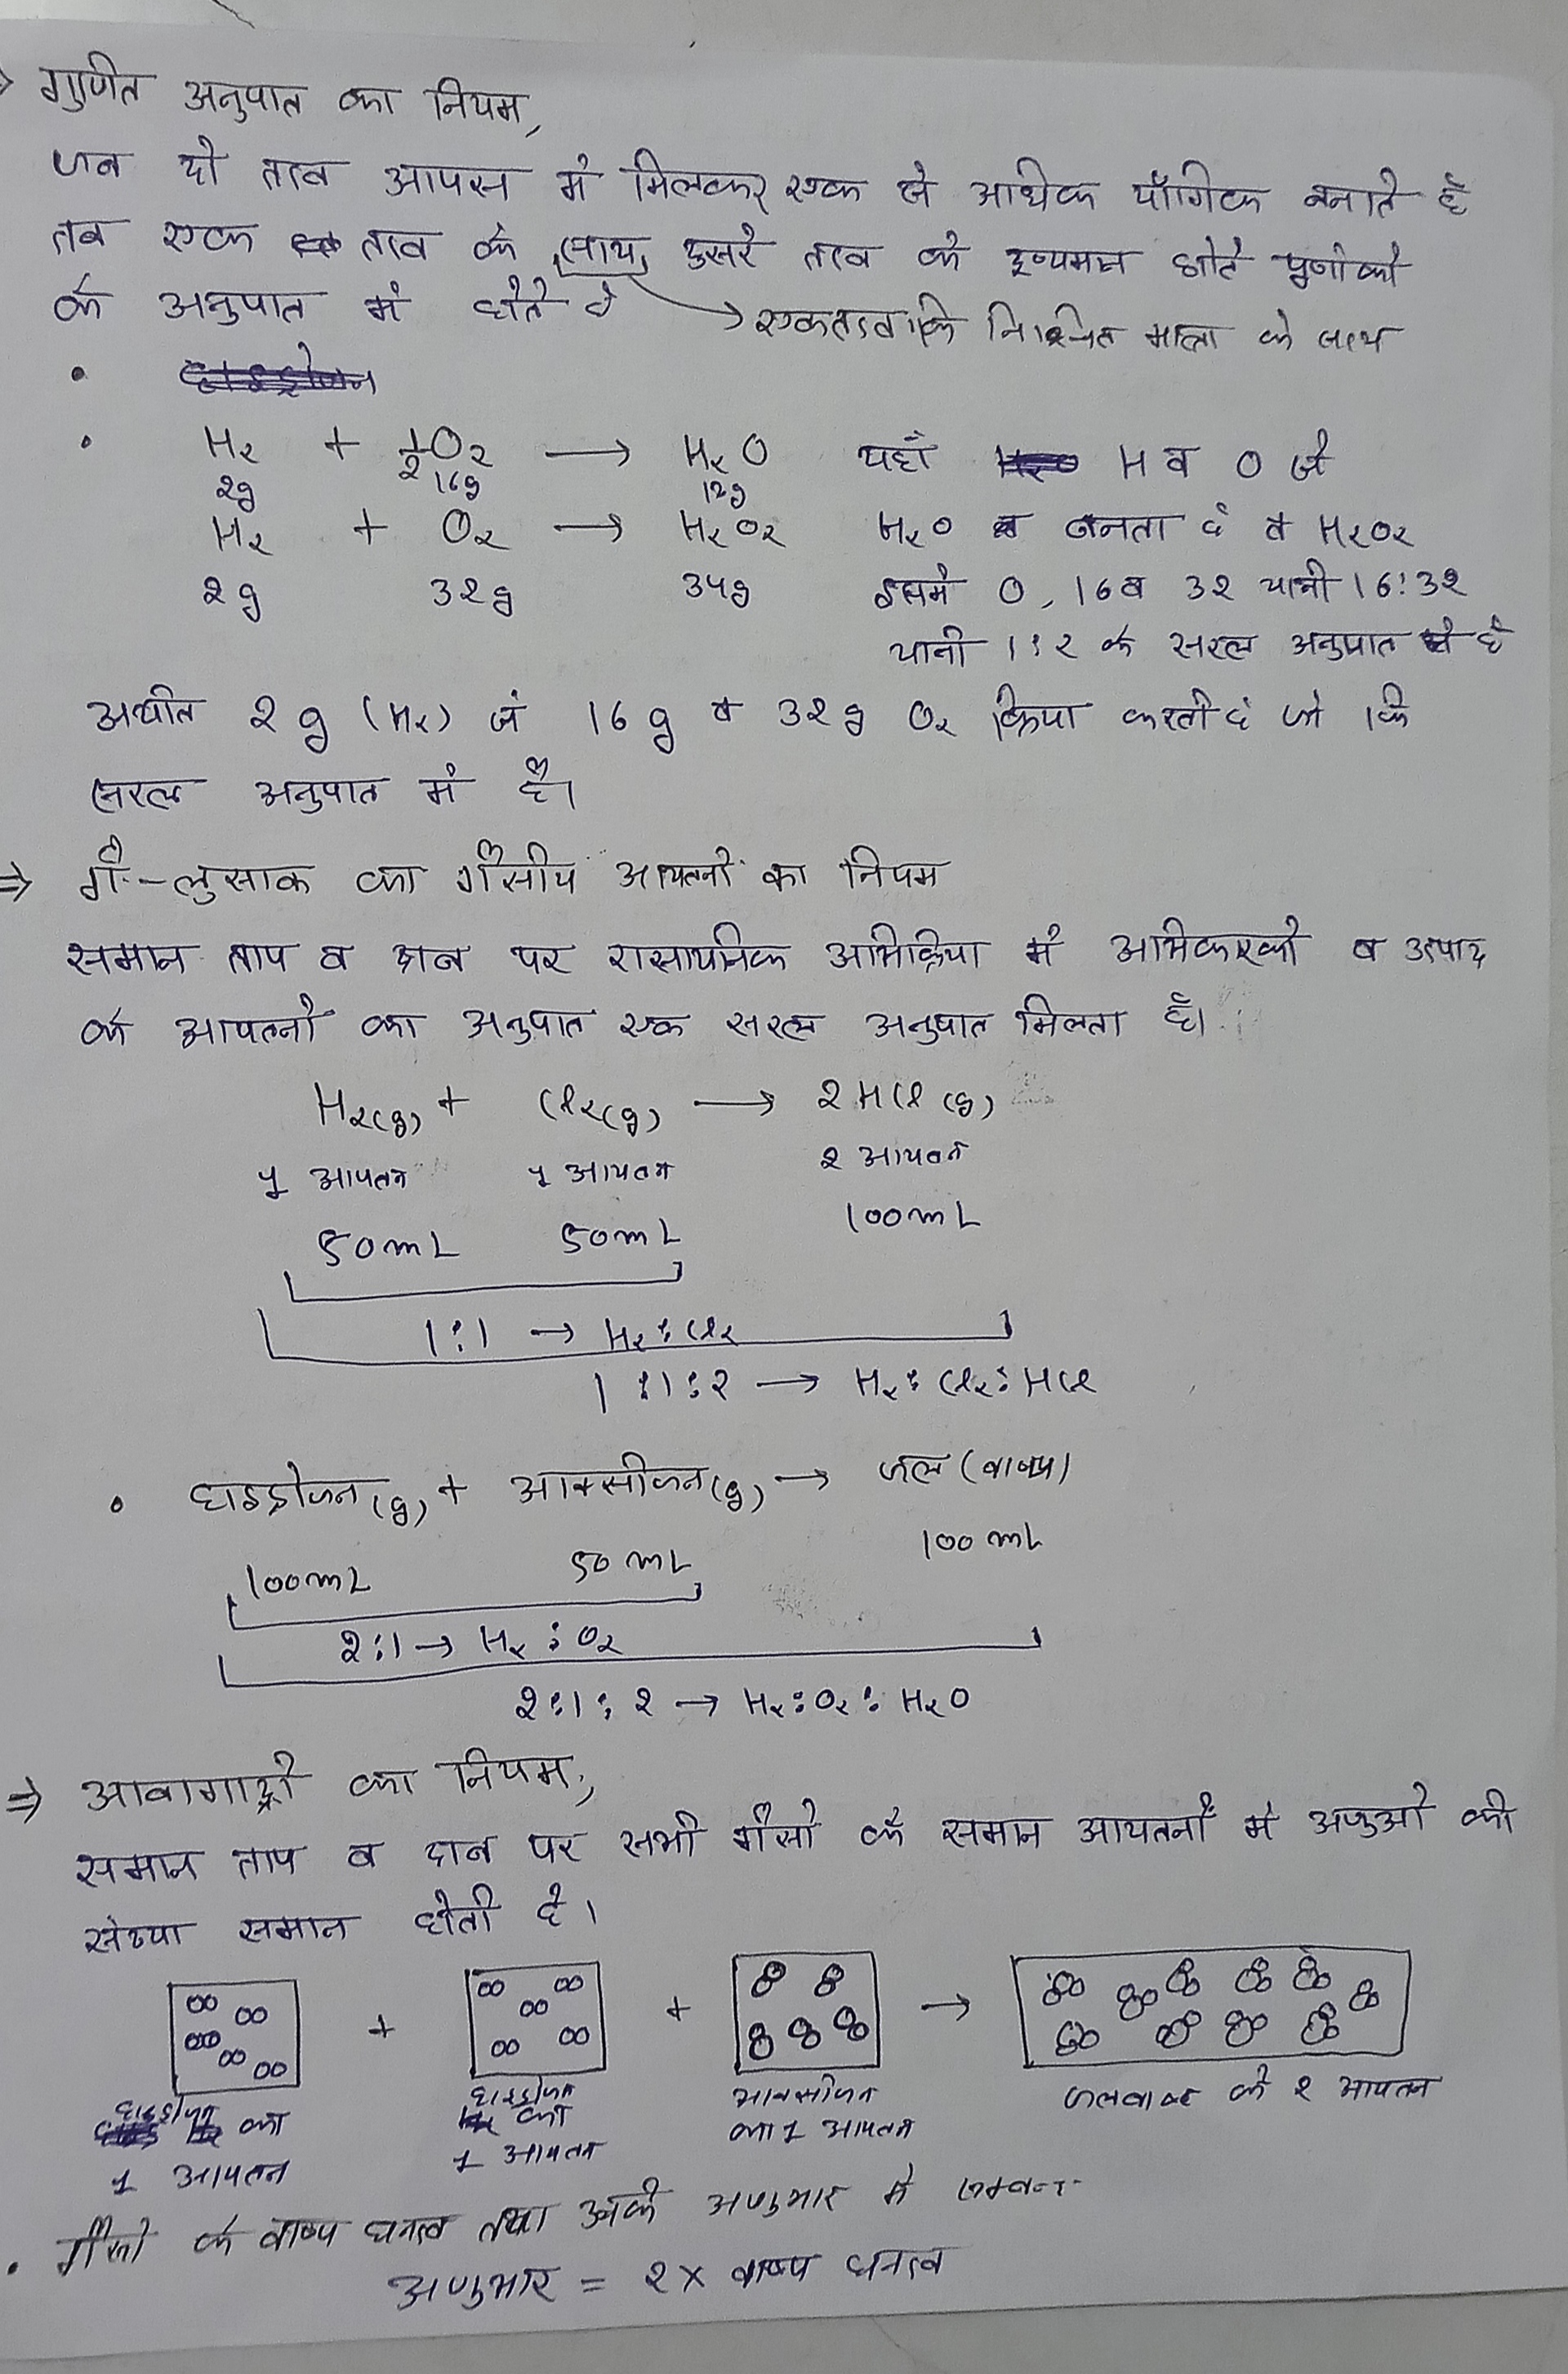 ⇒ गुणित अनुपात का नियम,
जब दो तत्व आपस में मिलकर एक से अधिक यौगिक बनाते है
तब एक तत्व के साथ दुसरे तत्व के द्रव्यमान छोटे पूर्णांको
के अनुपात में होते है → एकतत्व कि निश्चित मात्रा के साथ
•
• H₂ + ½O₂ → H₂O यहाँ H व O से
2g 16g 12g
H₂ + O₂ → H₂O₂ H₂O बनता है व H₂O₂
2g 32g 34g इसमे O, 16 व 32 यानी 16:32
यानी 1:2 के सरल अनुपात में है
अर्थात 2g (H₂) से 16g व 32g O₂ क्रिया करती है जो कि
सरल अनुपात में है।
⇒ गै-लुसाक का गैसीय आयतनों का नियम
समान ताप व दाब पर रासायनिक अभिक्रिया में अभिकारको व उत्पाद
के आयतनो का अनुपात एक सरल अनुपात मिलता है।
H₂(g) + Cl₂(g) → 2HCl(g)
1 आयतन 1 आयतन 2 आयतन
50mL 50mL 100mL
1:1 → H₂:Cl₂
1:1:2 → H₂:Cl₂:HCl
• हाइड्रोजन(g) + आक्सीजन(g) → जल (वाष्प)
100mL 50mL 100mL
2:1 → H₂:O₂
2:1:2 → H₂:O₂:H₂O
⇒ आवागाद्रो का नियम,
समान ताप व दाब पर सभी गैसो के समान आयतनों मे अणुओ की
संख्या समान होती है।
+ + →
हाइड्रोजन का हाइड्रोजन का आक्सीजन जलवाष्प के 2 आयतन
1 आयतन 1 आयतन का 1 आयतन
• गैसो के वाष्प घनत्व तथा उनके अणुभार मे सम्बन्ध
अणुभार = 2 × वाष्प घनत्व